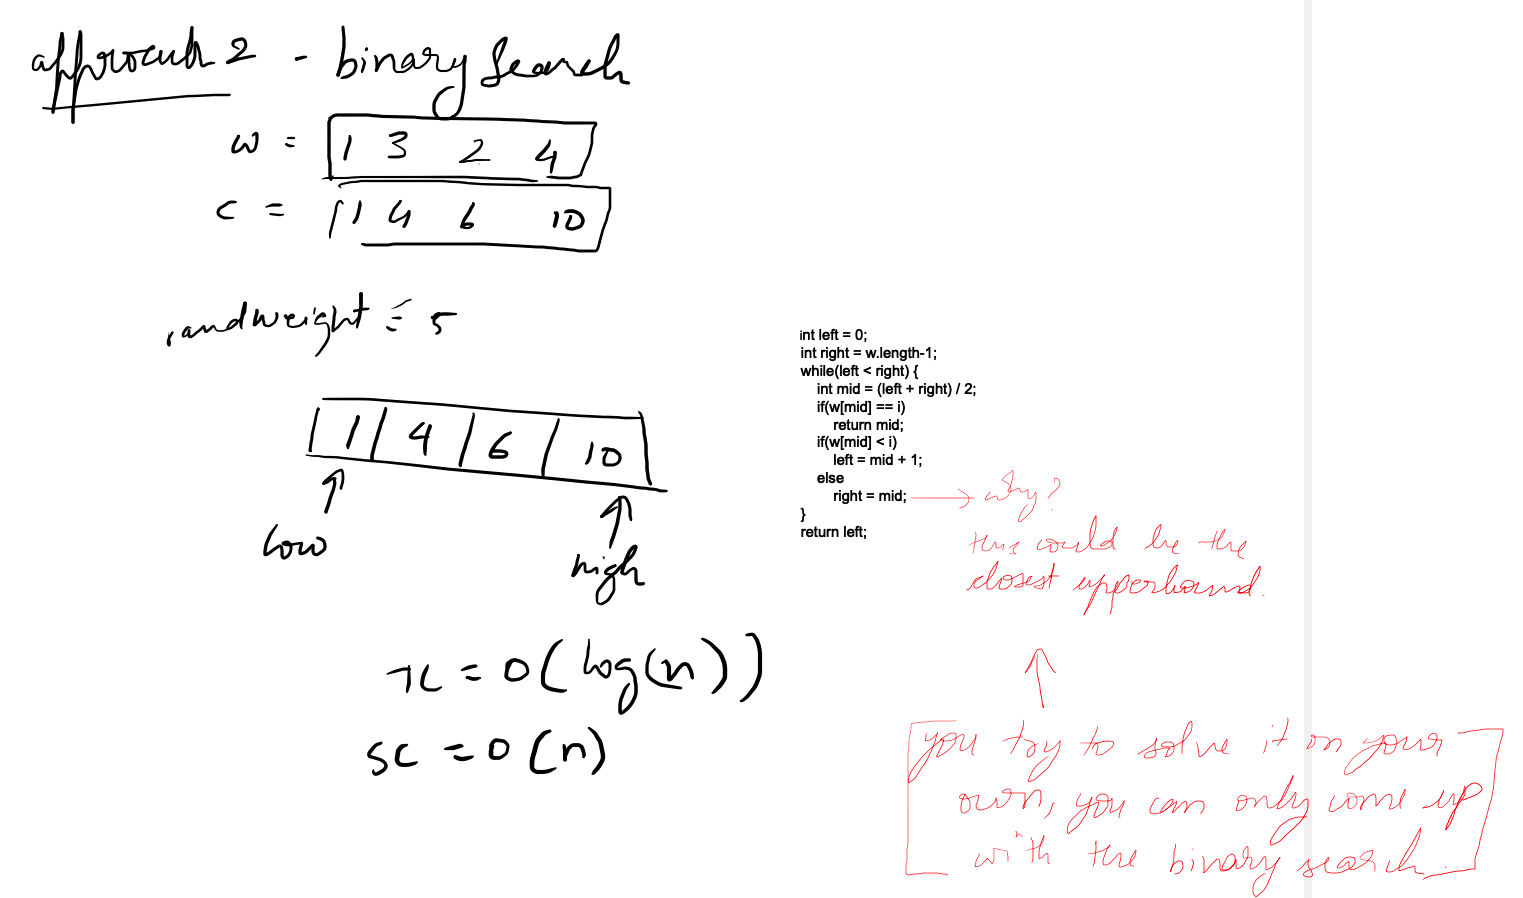 approach 2 - binary search
w = 1 3 2 4
c = 1 4 6 10
randweight = 5
1 4 6 10
low
high
TC = O(log(n))
SC = O(n)
int left = 0;
int right = w.length-1;
while(left < right) {
int mid = (left + right) / 2;
if(w[mid] == i)
return mid;
if(w[mid] < i)
left = mid + 1;
else
right = mid;
}
return left;
why?
this could be the
closest upperbound.
you try to solve it on your
own, you can only come up
with the binary search.